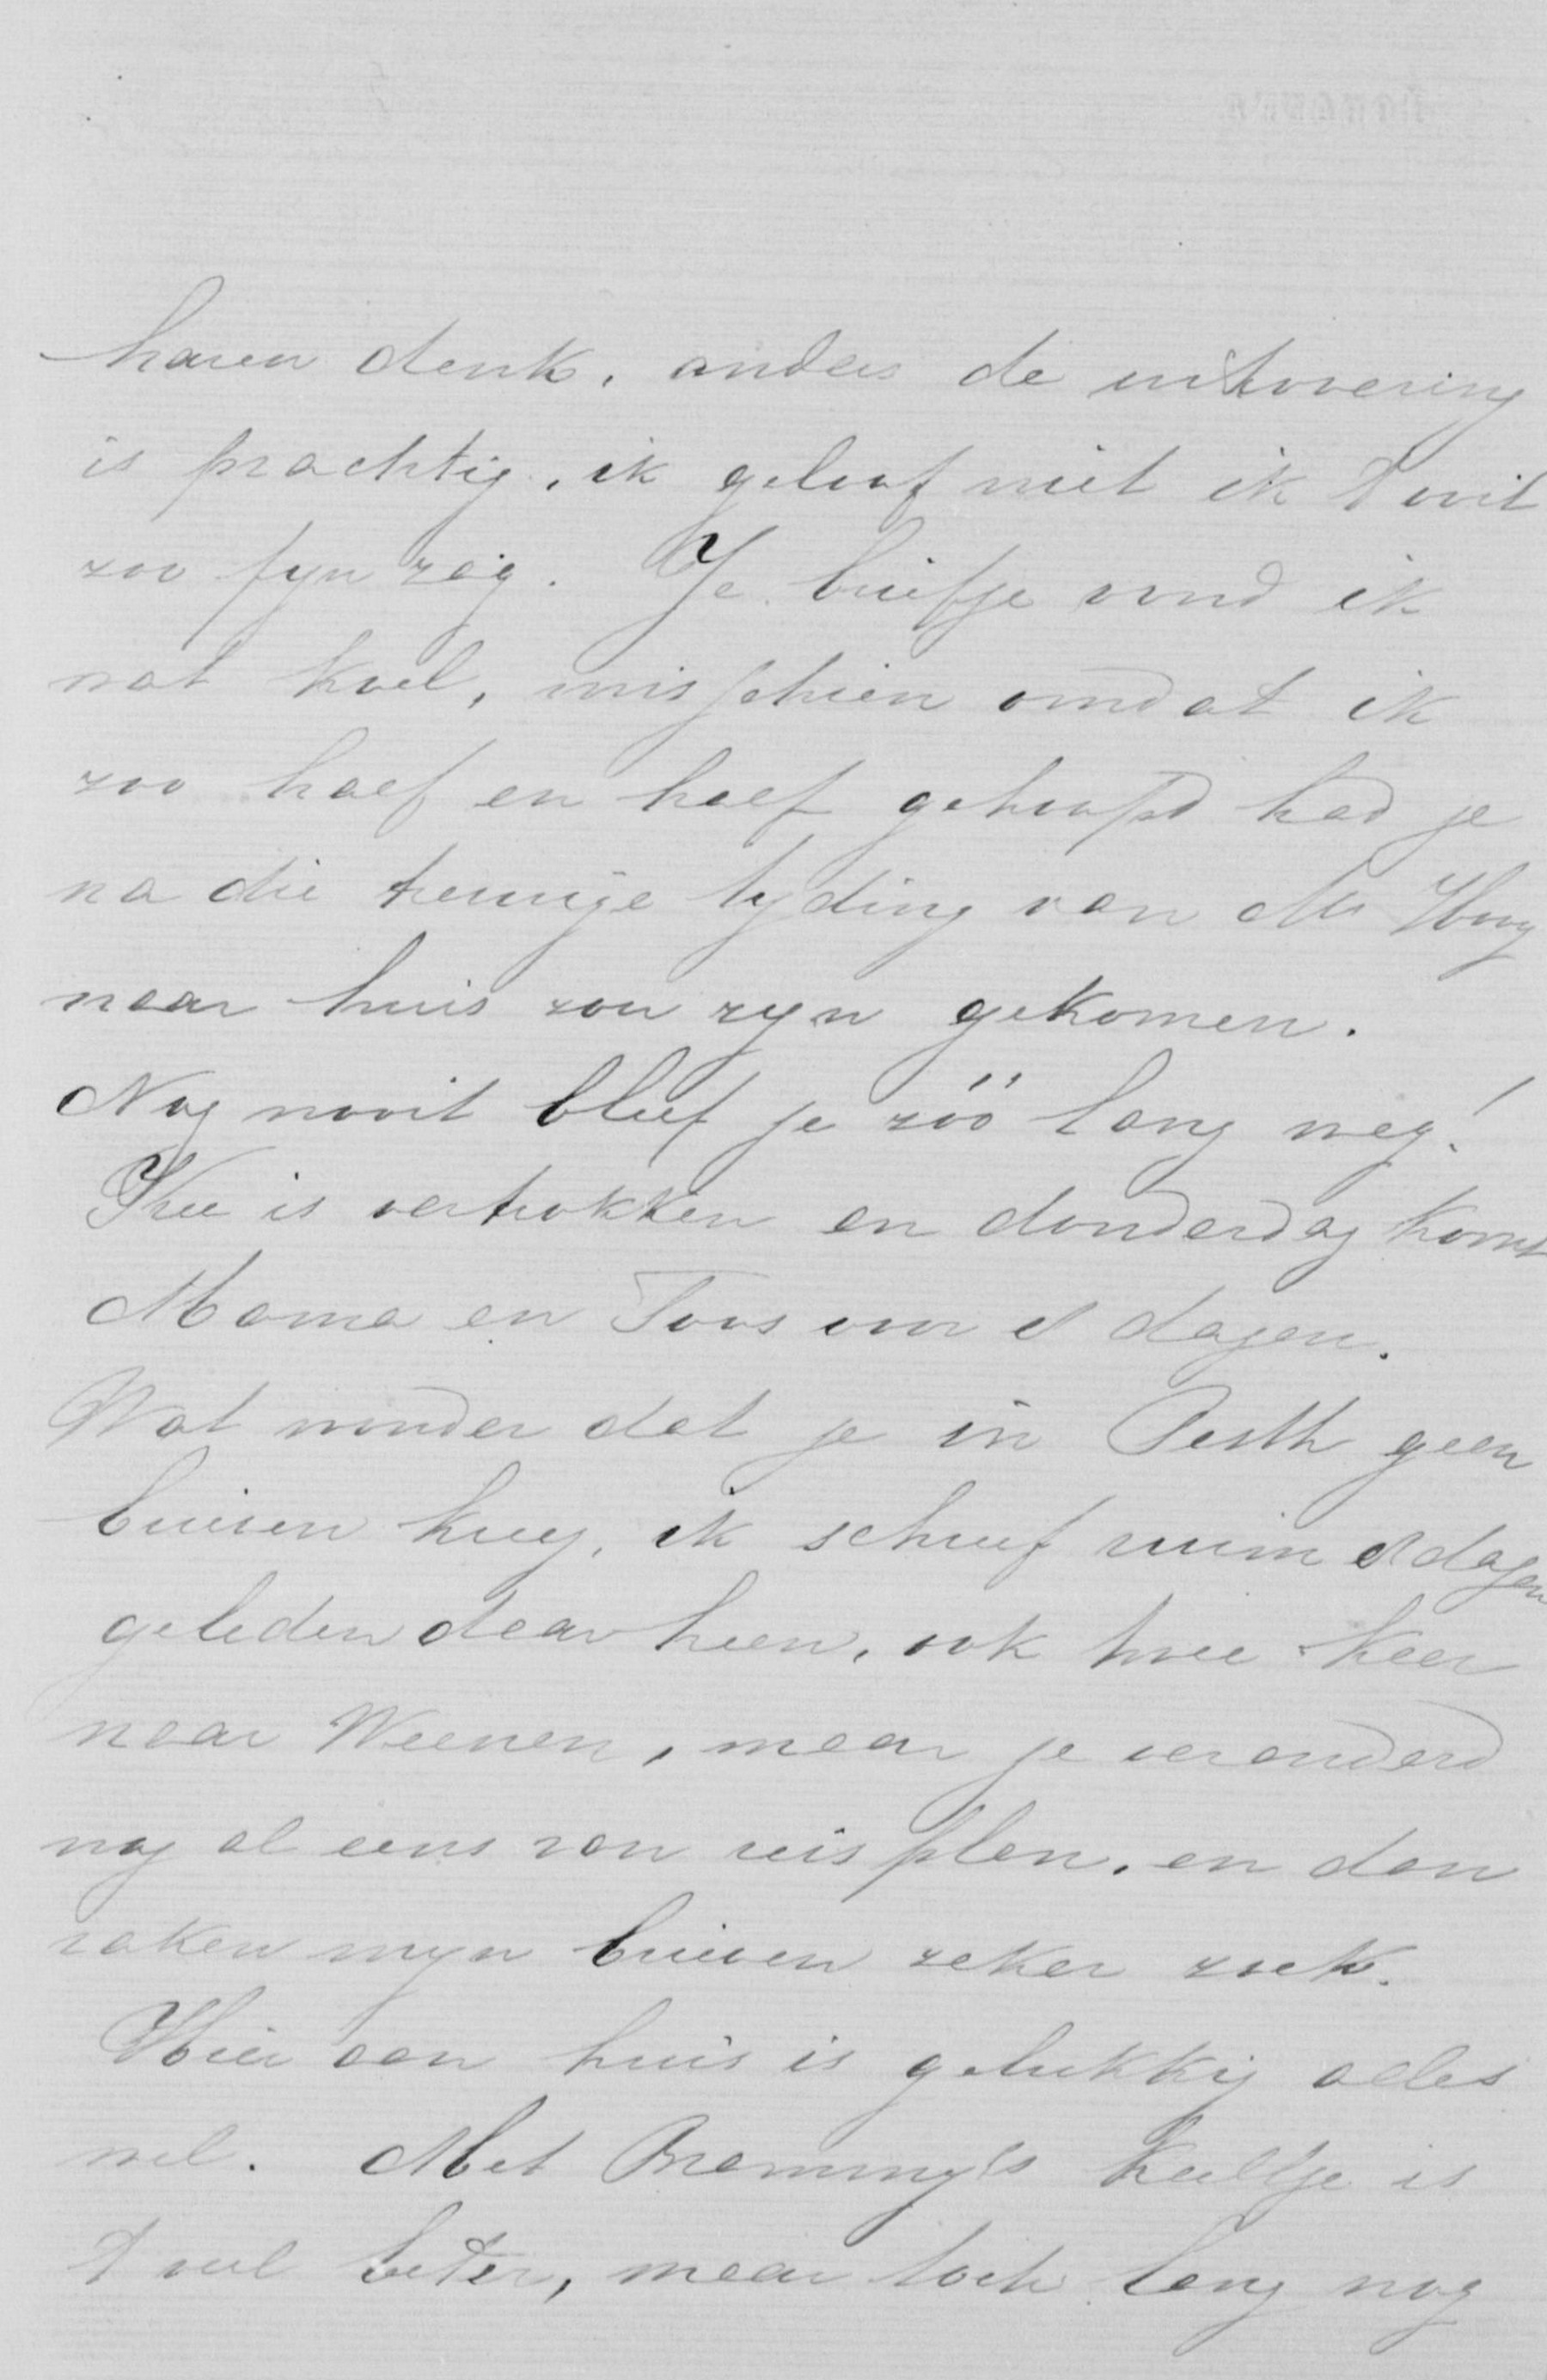 haren denk, anders de uitvoering
is prachtig, ik geloof niet ik 't ooit
zoo fyn zag. Je briefje vond ik
wat koel, misschien omdat ik
zoo half en half gehoopd had je
na die treurige tyding van Mr Hu
naar huis zou zyn gekomen.
Nog nooit bleef je zóó lang weg!
Thee is vertrokken en donderdag komt
Mama en Toos voor 8 dagen.
Wat wonder dat je in Pesth geen
brieven kreeg, ik schreef ruim 8 dagen
geleden daar heen, ook twee keer
naar Weenen, maar je veranderd
nog al eens van reisplan, en dan
raken myn brieven zeker zoek.
Hier aan huis is gelukkig alles
wel. Met keeltje is
't veel beter, maar toch lang nog